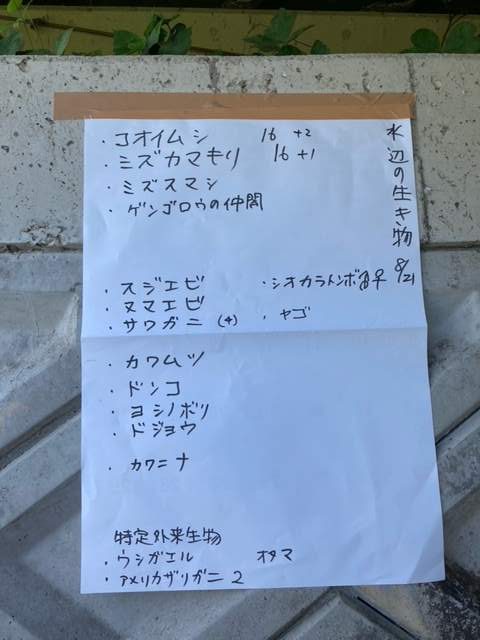 水辺の生き物 8/21
・コオイムシ 16 +2
・ミズカマキリ 16 +1
・ミズスマシ
・ゲンゴロウの仲間
・スジエビ ・シオカラトンボ
・ヌマエビ
・サワガニ (4) ・ヤゴ
・カワムツ
・ドンコ
・ヨシノボリ
・ドジョウ
・カワニナ
特定外来生物
・ウシガエル オタマ
・アメリカザリガニ 2